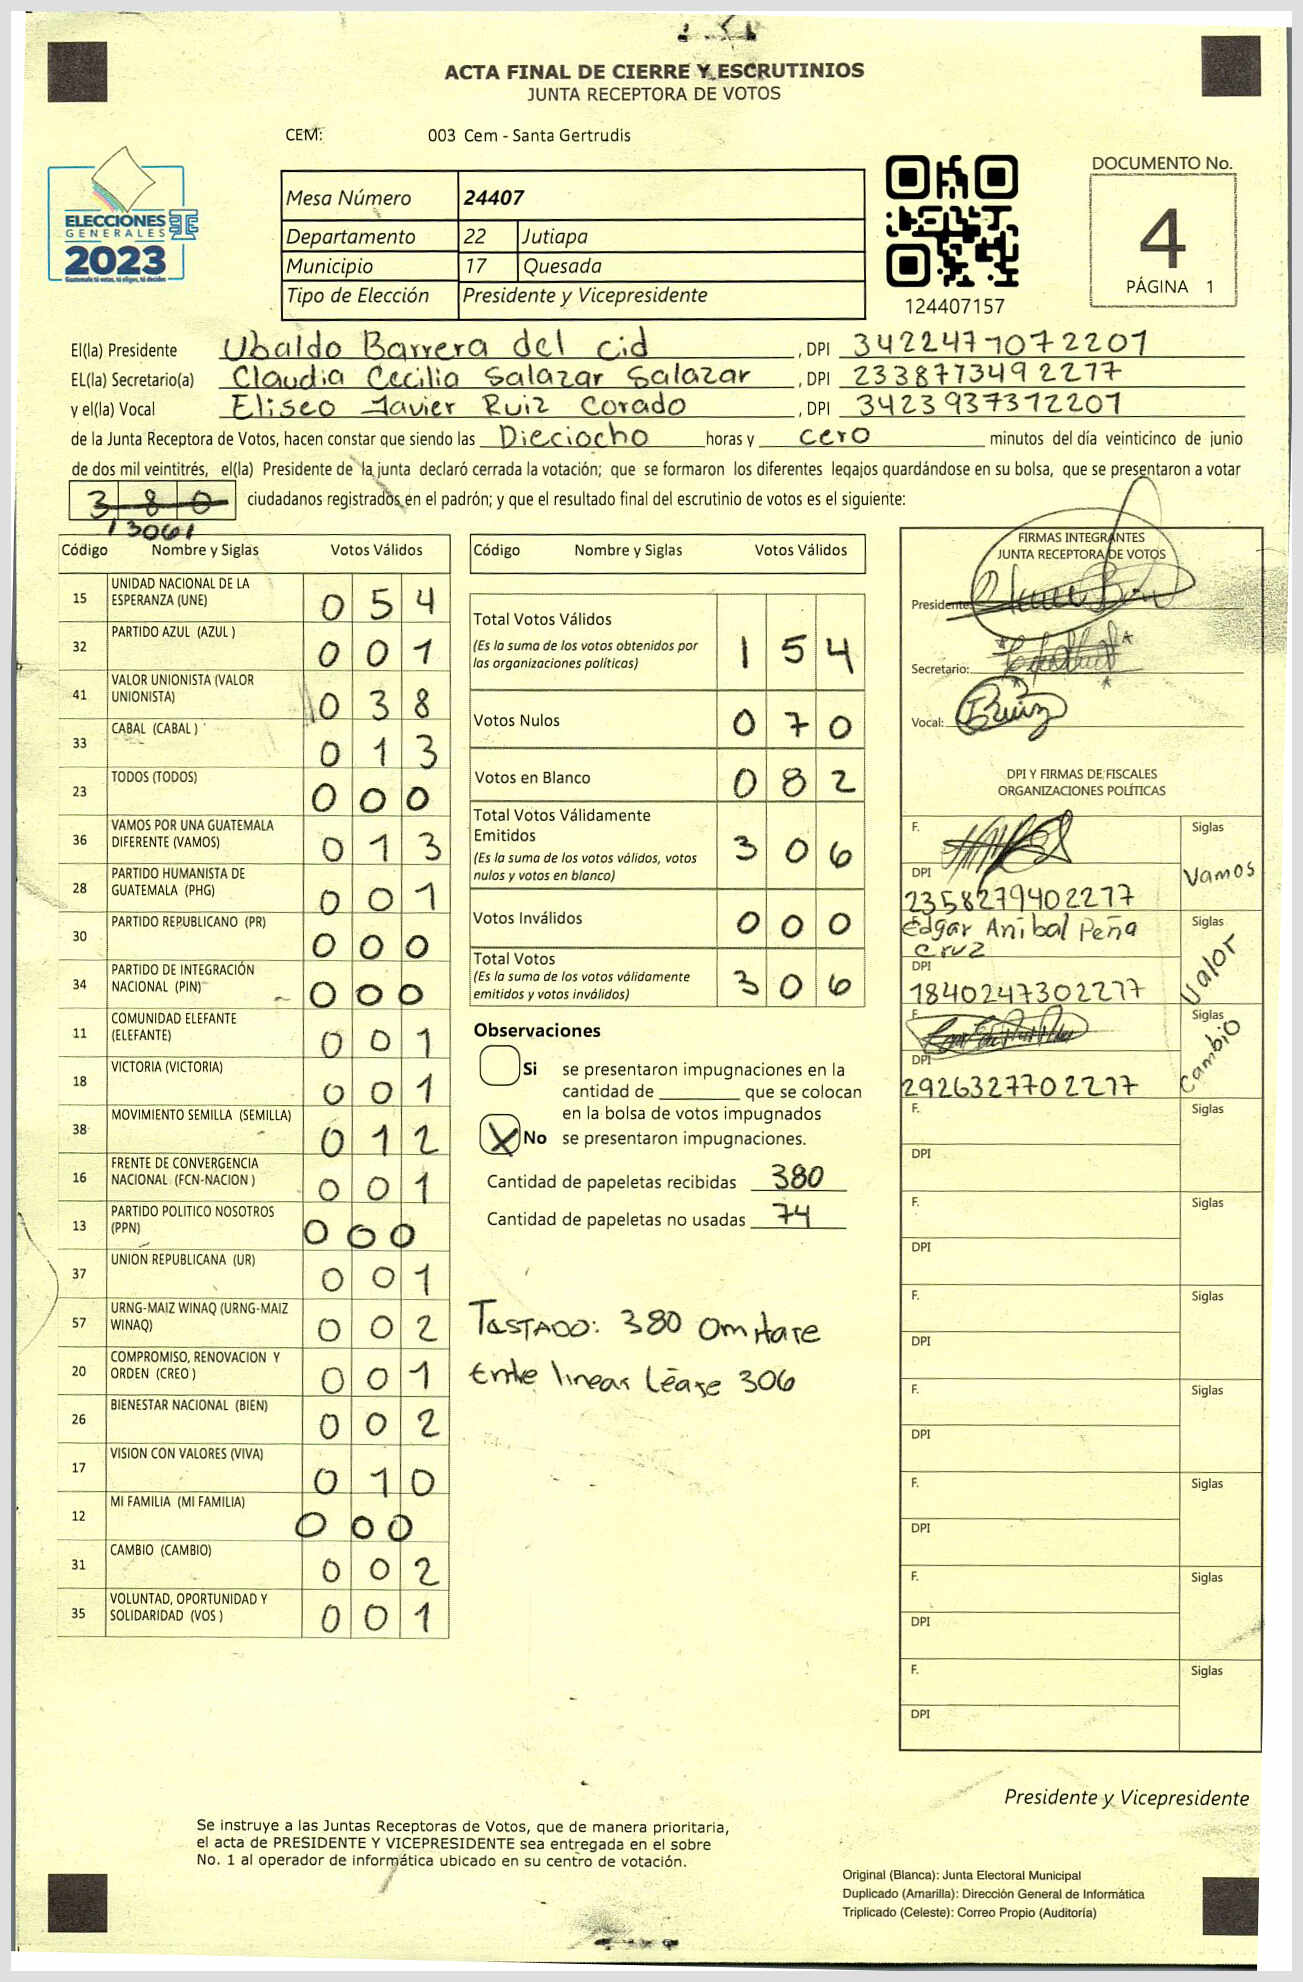 ACTA FINAL DE CIERRE Y ESCRUTINIOS
JUNTA RECEPTORA DE VOTOS
CEM: 003 Cem - Santa Gertrudis
ELECCIONES
GENERALES
2023
Guatemala tú votas, tú eliges, tú decides
Mesa Número 24407
Departamento 22 Jutiapa
Municipio 17 Quesada
Tipo de Elección Presidente y Vicepresidente
124407157
DOCUMENTO No.
4
PÁGINA 1
El(la) Presidente Ubaldo Barrera del cid, DPI 3422471072201
EL(la) Secretario(a) Claudia Cecilia Salazar Salazar, DPI 2338773492217
y el(la) Vocal Eliseo Javier Ruiz Corado, DPI 3423937312201
de la Junta Receptora de Votos, hacen constar que siendo las Dieciocho horas y cero minutos del día veinticinco de junio
de dos mil veintitrés, el(la) Presidente de la junta declaró cerrada la votación; que se formaron los diferentes legajos guardándose en su bolsa, que se presentaron a votar
380 ciudadanos registrados en el padrón; y que el resultado final del escrutinio de votos es el siguiente:
306
Código Nombre y Siglas Votos Válidos
15 UNIDAD NACIONAL DE LA ESPERANZA (UNE) 0 5 4
32 PARTIDO AZUL (AZUL ) 0 0 1
41 VALOR UNIONISTA (VALOR UNIONISTA) 0 3 8
33 CABAL (CABAL ) 0 1 3
23 TODOS (TODOS) 0 0 0
36 VAMOS POR UNA GUATEMALA DIFERENTE (VAMOS) 0 1 3
28 PARTIDO HUMANISTA DE GUATEMALA (PHG) 0 0 1
30 PARTIDO REPUBLICANO (PR) 0 0 0
34 PARTIDO DE INTEGRACIÓN NACIONAL (PIN) 0 0 0
11 COMUNIDAD ELEFANTE (ELEFANTE) 0 0 1
18 VICTORIA (VICTORIA) 0 0 1
38 MOVIMIENTO SEMILLA (SEMILLA) 0 1 2
16 FRENTE DE CONVERGENCIA NACIONAL (FCN-NACION ) 0 0 1
13 PARTIDO POLITICO NOSOTROS (PPN) 0 0 0
37 UNION REPUBLICANA (UR) 0 0 1
57 URNG-MAIZ WINAQ (URNG-MAIZ WINAQ) 0 0 2
20 COMPROMISO, RENOVACION Y ORDEN (CREO ) 0 0 1
26 BIENESTAR NACIONAL (BIEN) 0 0 2
17 VISION CON VALORES (VIVA) 0 1 0
12 MI FAMILIA (MI FAMILIA) 0 0 0
31 CAMBIO (CAMBIO) 0 0 2
35 VOLUNTAD, OPORTUNIDAD Y SOLIDARIDAD (VOS ) 0 0 1
Código Nombre y Siglas Votos Válidos
Total Votos Válidos 1 5 4
(Es la suma de los votos obtenidos por
las organizaciones políticas)
Votos Nulos 0 7 0
Votos en Blanco 0 8 2
Total Votos Válidamente
Emitidos 3 0 6
(Es la suma de los votos válidos, votos
nulos y votos en blanco)
Votos Inválidos 0 0 0
Total Votos 3 0 6
(Es la suma de los votos válidamente
emitidos y votos inválidos)
Observaciones
Si se presentaron impugnaciones en la
cantidad de ________ que se colocan
en la bolsa de votos impugnados
X No se presentaron impugnaciones.
Cantidad de papeletas recibidas 380
Cantidad de papeletas no usadas 74
TESTADO: 380 Omitase
Entre lineas Léase 306
FIRMAS INTEGRANTES
JUNTA RECEPTORA DE VOTOS
Presidente:
Secretario:
Vocal: Ruiz
DPI Y FIRMAS DE FISCALES
ORGANIZACIONES POLÍTICAS
F. Siglas
DPI Vamos
2358279402217
Edgar Aníbal Peña Siglas
Cruz
DPI Valor
1840247302217
F. Siglas
DPI Cambio
2926327702217
F. Siglas
DPI
F. Siglas
DPI
F. Siglas
DPI
F. Siglas
DPI
F. Siglas
DPI
F. Siglas
DPI
F. Siglas
DPI
Presidente y Vicepresidente
Se instruye a las Juntas Receptoras de Votos, que de manera prioritaria,
el acta de PRESIDENTE Y VICEPRESIDENTE sea entregada en el sobre
No. 1 al operador de informática ubicado en su centro de votación.
Original (Blanca): Junta Electoral Municipal
Duplicado (Amarilla): Dirección General de Informática
Triplicado (Celeste): Correo Propio (Auditoría)